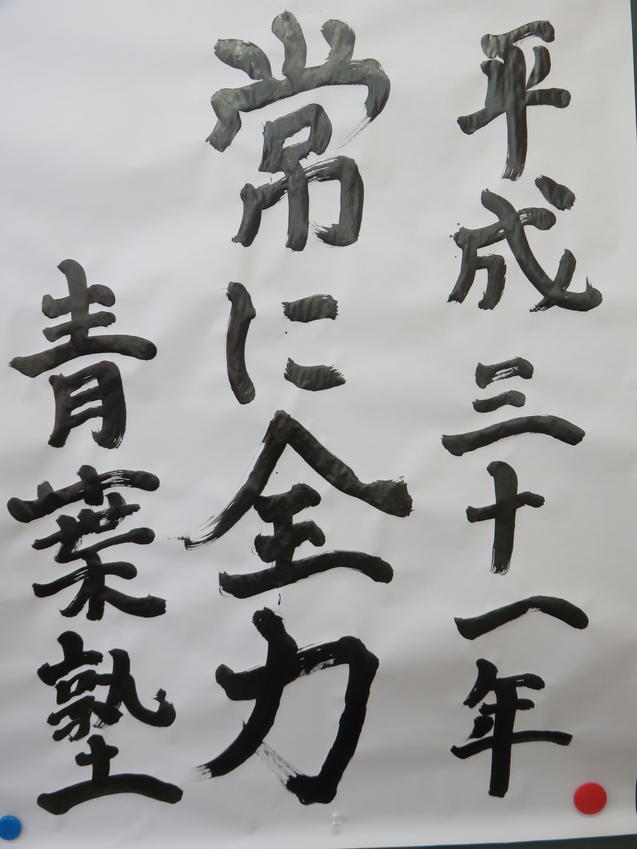 平成三十一年
常に全力
青葉塾